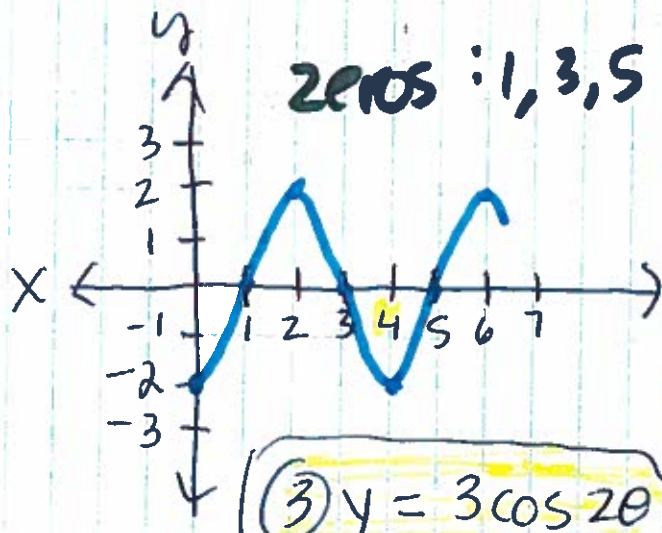 y
zeros : 1, 3, 5
3
2
1
X
-1 1 2 3 4 5 6 7
-2
-3
③ y = 3cos 2θ